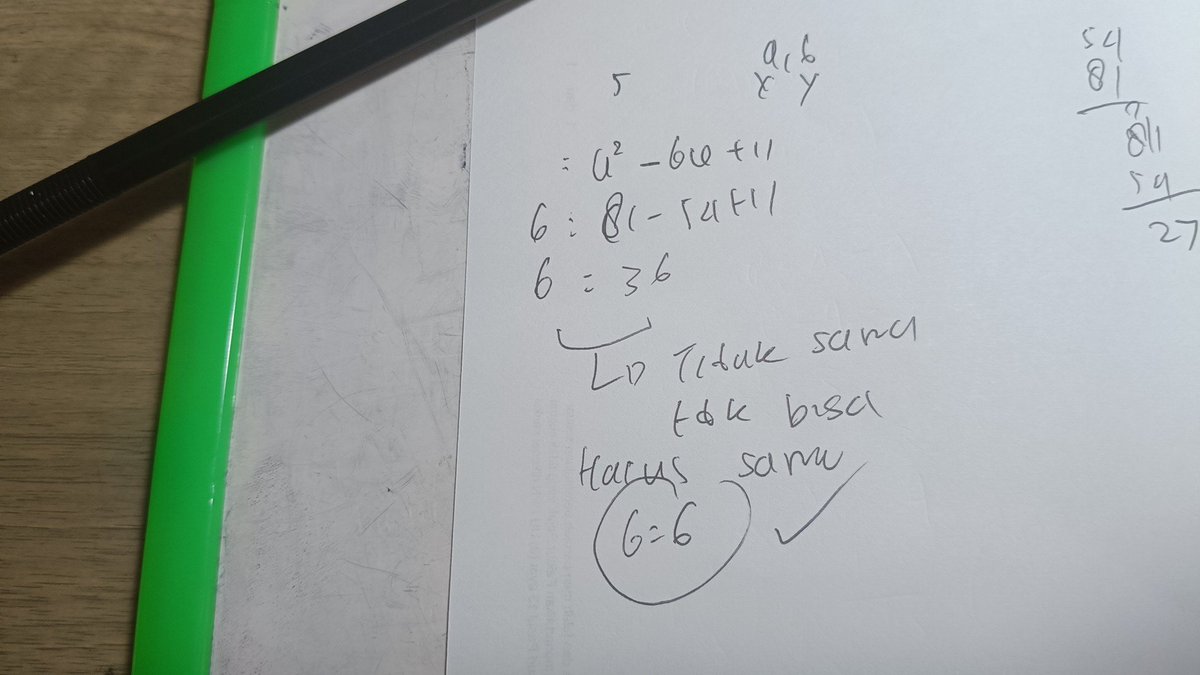 5
a, b
x y
= a² - 6a + 11
6 = 81 - 54 + 11
6 = 36
Tidak sama
tdk bisa
Harus sama
6 = 6
54
81
81
54
27